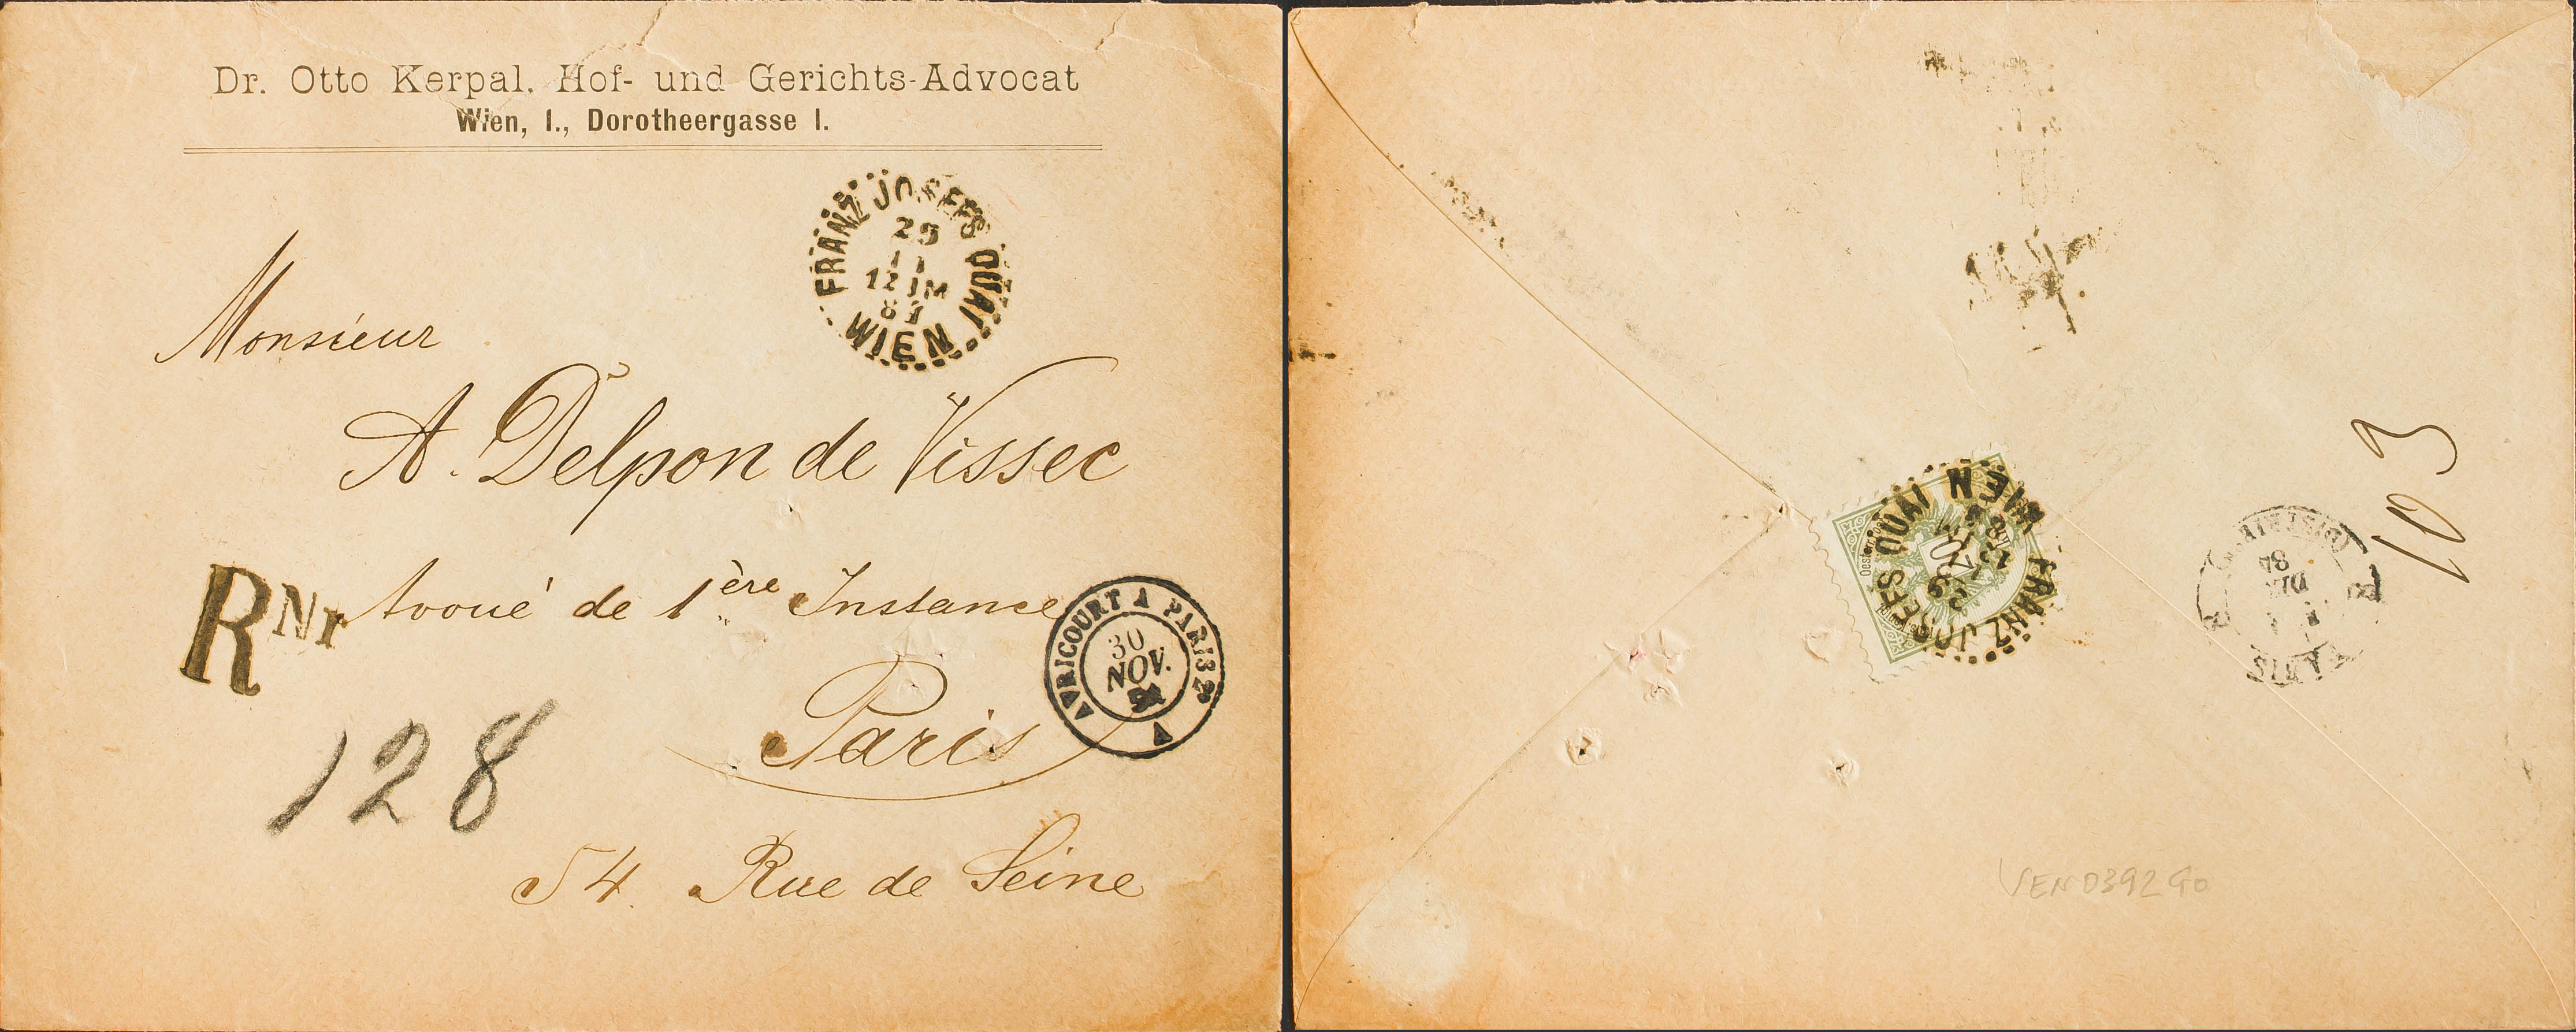 Dr. Otto Kerpal, Hof- und Gerichts-Advocat
Wien, I., Dorotheergasse 1.
FRANZ JOSEFS QUAI
29
11
12 1M
WIEN
Monsieur
A. Delpon de Vissec
Avoué de 1ère Instance
RNr
128
AVRICOURT A PARIS 2°
30
NOV.
A
Paris
54. Rue de Seine
FRANZ JOSEFS QUAI
WIEN
PARIS
103
VEND39290